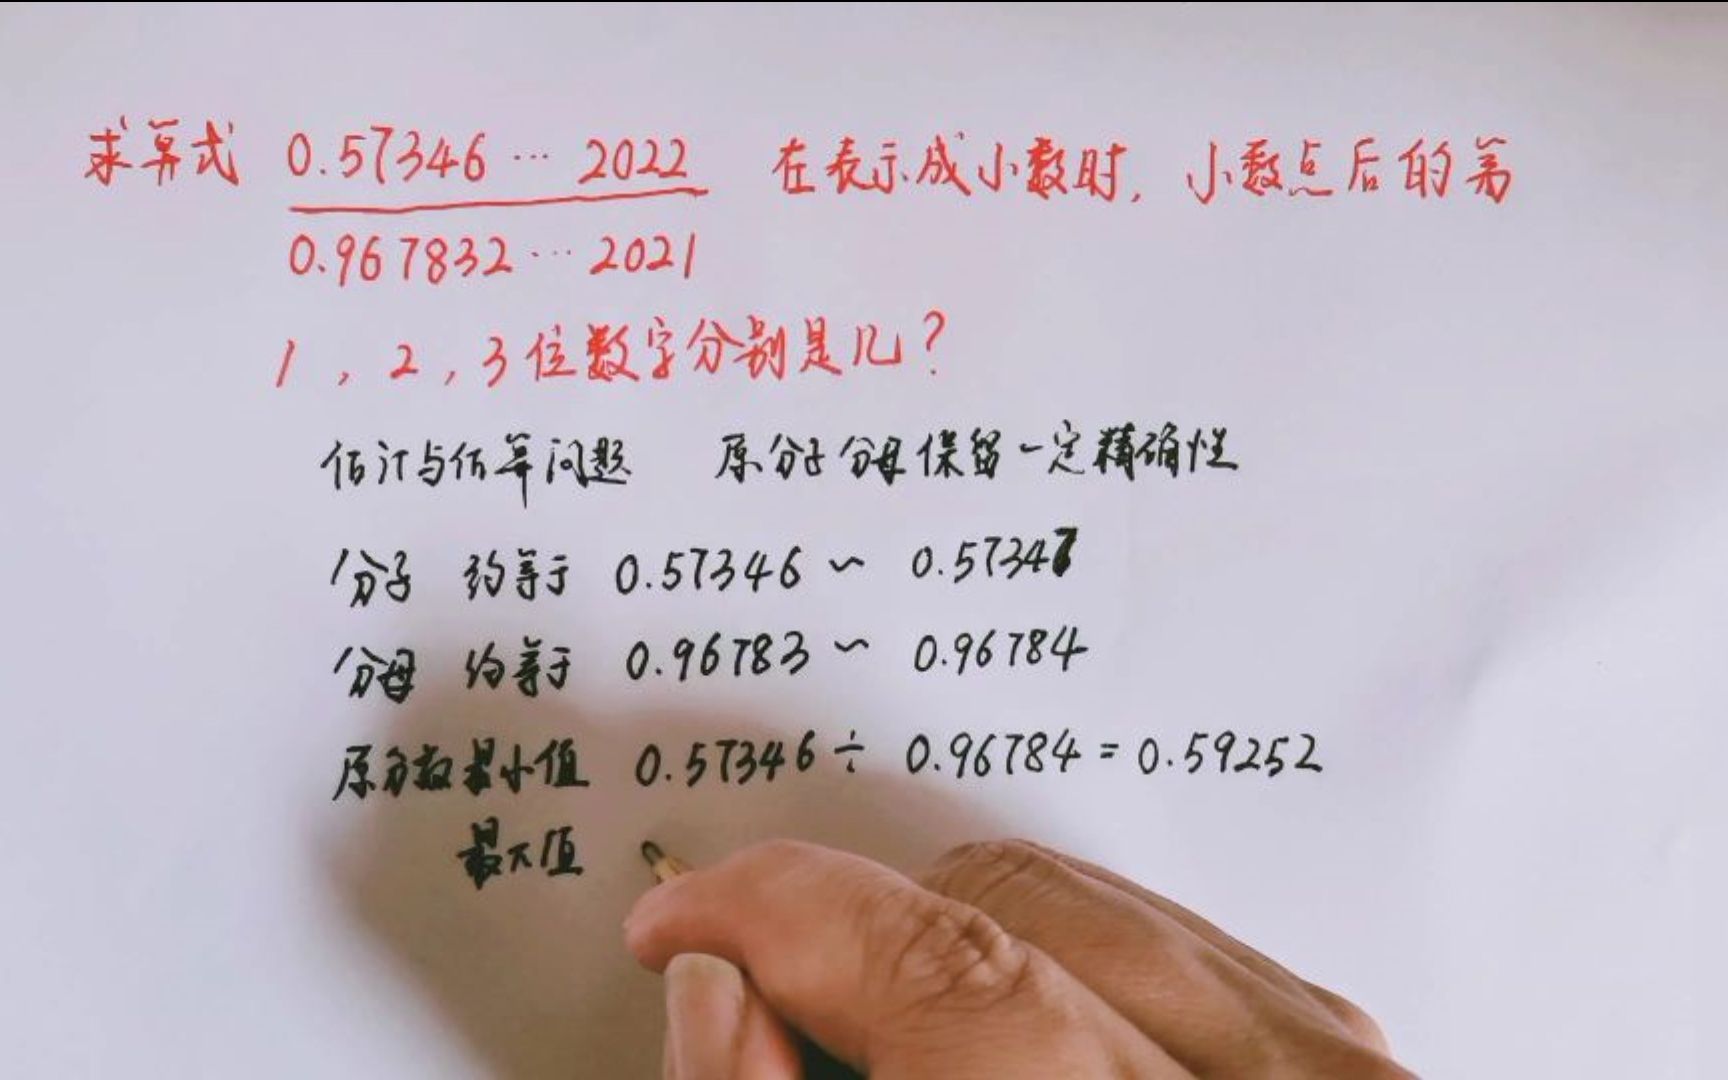 求算式 0.57346 … 2022 在表示成小数时, 小数点后的第
0.967832 … 2021
1, 2, 3位数字分别是几?
估计与估算问题 原分子分母保留一定精确性
分子 约等于 0.57346 ~ 0.57347
分母 约等于 0.96783 ~ 0.96784
原分数最小值 0.57346 ÷ 0.96784 = 0.59252
最大值